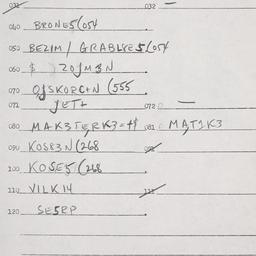 032 032
040 BRONES(054
050 BEZIM / GRABLJES(054
060 $ 20JM3N
070 OJSKORCTN (555
071 JETT 072
080 MAK3TERK3=$ 081 MAT1K3
090 KOS83N(268
100 KOSES(268
110 VILK14 111
120 SESEP